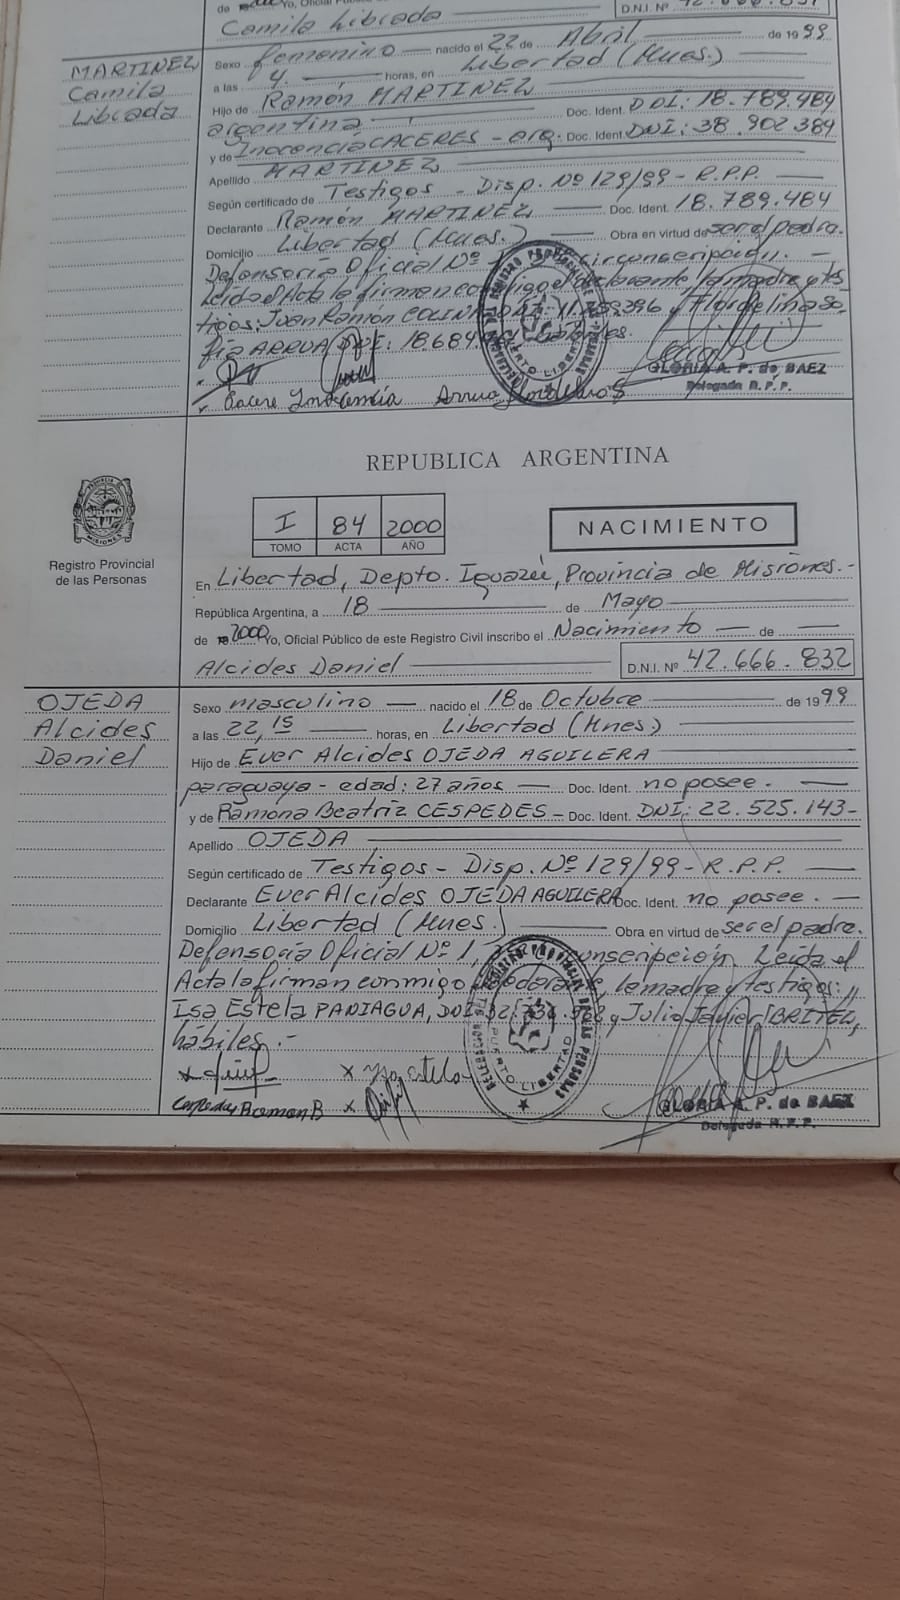 Camila Librada
D.N.I. Nº
MARTINEZ
Camila
Librada
Sexo femenino — nacido el 22 de Abril — de 1999
a las 4. — horas, en Libertad (Mnes.)
Hijo de Ramón MARTINEZ — Doc. Ident. DNI: 18.789.484
argentina
y de Inocencia CACERES - arg. Doc. Ident. DNI: 38.902.384
Apellido MARTINEZ
Según certificado de Testigos - Disp. Nº 129/99 - R.P.P. —
Declarante Ramón MARTINEZ — Doc. Ident. 18.789.484
Domicilio Libertad (Mnes.) — Obra en virtud de ser el padre.
Defensoría Oficial Nº circunscripción. —
Leída el Acta la firman conmigo el declarante, la madre y tes
tigos: Juan Ramón y Flordelina So
fía ARRUA DNI: 18.684
Cacere Inosencia Arrua
GLORIA A. P. de BAEZ
Delegada R. P. P.
REPUBLICA ARGENTINA
I 84 2000
TOMO ACTA AÑO
NACIMIENTO
PROVINCIA DE MISIONES
Registro Provincial
de las Personas
En Libertad, Depto. Iguazú, Provincia de Misiones.-
República Argentina, a 18 — de Mayo
de 2000 Yo, Oficial Público de este Registro Civil inscribo el Nacimiento — de —
Alcides Daniel — D.N.I. Nº 42.666.832
OJEDA
Alcides
Daniel
Sexo masculino — nacido el 18 de Octubre — de 1999
a las 22,15 — horas, en Libertad (Mnes)
Hijo de Ever Alcides OJEDA AGUILERA
paraguaya - edad: 27 años — Doc. Ident. no posee. —
y de Ramona Beatriz CESPEDES - Doc. Ident. DNI: 22.525.143-
Apellido OJEDA
Según certificado de Testigos - Disp. Nº 129/99 - R.P.P. —
Declarante Ever Alcides OJEDA AGUILERA Doc. Ident. no posee. —
Domicilio Libertad (Mnes.) — Obra en virtud de ser el padre.
Defensoría Oficial Nº 1, circunscripción Leída el
Acta la firman conmigo la madre y testigos:
Isa Estela PANIAGUA, DNI y Julio Javier BRITEZ,
hábiles.-
DELEGACION DEL REGISTRO PROVINCIAL DE LAS PERSONAS
PUERTO LIBERTAD
x x Isa estela
Cespedes Ramon B x
GLORIA A. P. de BAEZ
Delegada R. P. P.